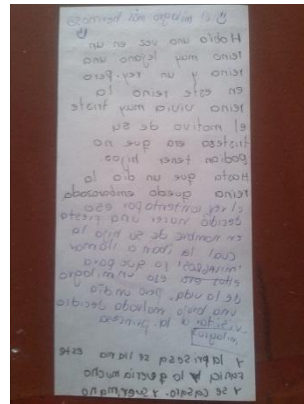 el milagro más hermoso
Había una vez en un
reino muy lejano una
reina y un rey. Pero
en este reino la
reina vivia muy triste
el motivo de su
tristesa era que no
podian tener hijos.
Hasta que un dia la
reina quedo embarazada
el rey contento por esa
decidio hacer una fiesta
en nombre de su hija la
cual la iban a llamar
"milagros" ya que para
ellos era un milagro
de la vida. Pero un dia
una bruja malvada decidio
visitar a la princesa
milagros
y la prinsesa se llama este
y lo queria mucho
y se casaro. y su ermano